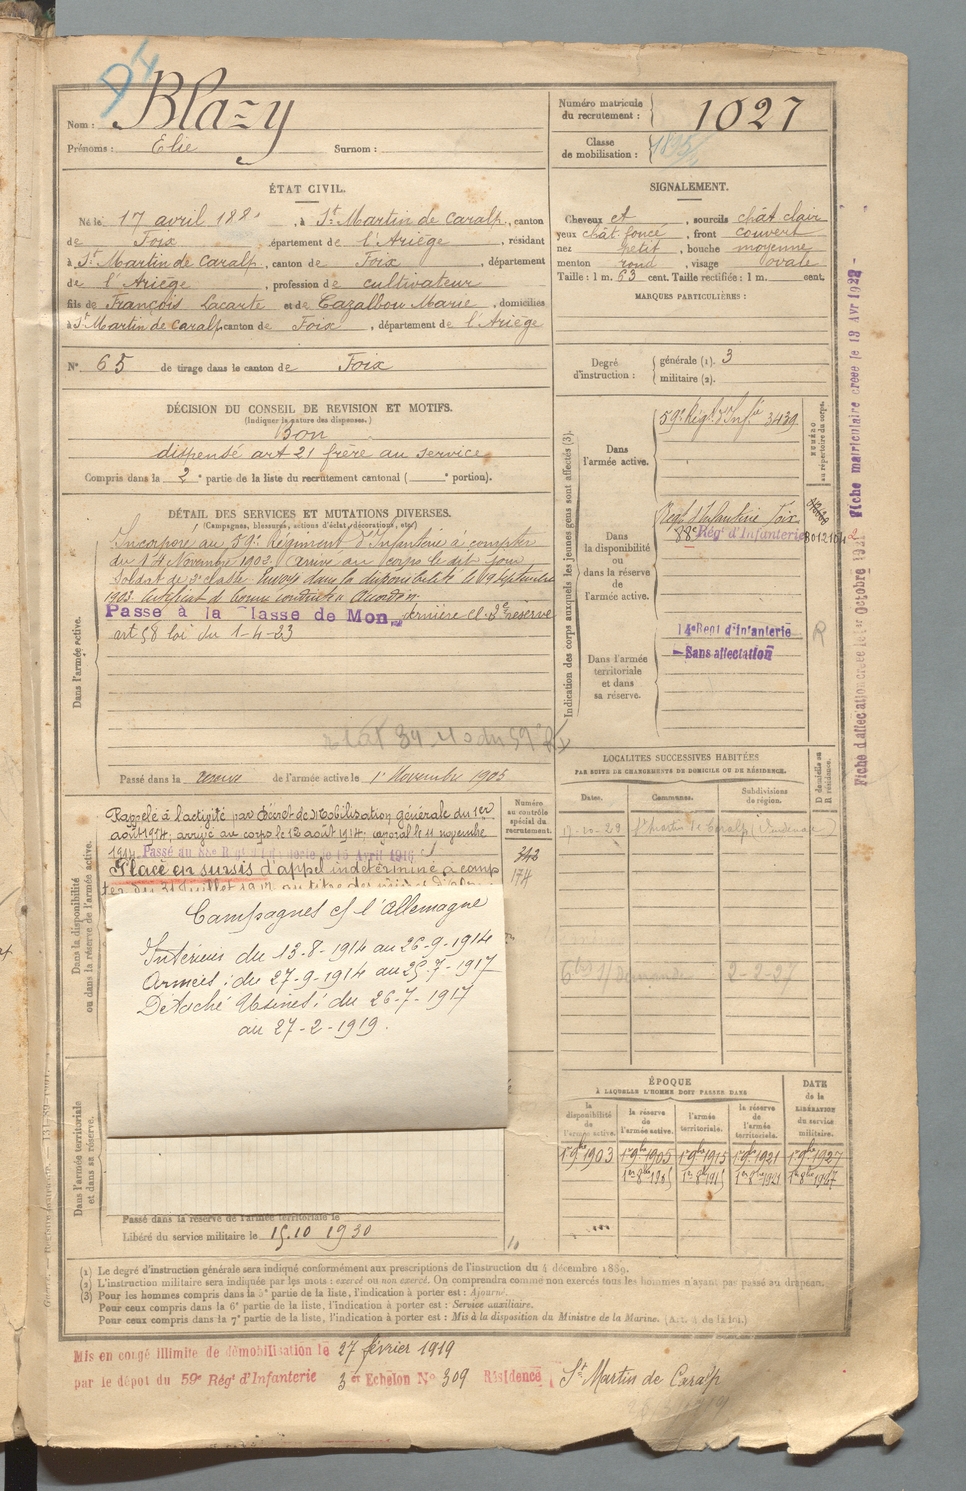 Nom : Blazy
Prénoms : Elie Surnom :
Numéro matricule
du recrutement : 1027
Classe
de mobilisation :
ÉTAT CIVIL.
Né le 17 avril 188 , à St Martin de Caralp, canton
de Foix , département de l'Ariège , résidant
à St Martin de Caralp, canton de Foix , département
de l'Ariège , profession de cultivateur
fils de François Lacarte et de Cazalbou Marie , domiciliés
à St Martin de Caralp, canton de Foix , département de l'Ariège
N° 65 de tirage dans le canton de Foix
SIGNALEMENT.
Cheveux et , sourcils chât clair
yeux chât foncé , front couvert
nez petit , bouche moyenne
menton rond , visage ovale
Taille : 1 m. 63 cent. Taille rectifiée : 1 m. cent.
MARQUES PARTICULIÈRES :
Degré
d'instruction :
générale (1). 3
militaire (2).
DÉCISION DU CONSEIL DE REVISION ET MOTIFS.
(Indiquer la nature des dispenses.)
Bon
dispensé art 21 frère au service
Compris dans la 2e partie de la liste du recrutement cantonal ( e portion).
DÉTAIL DES SERVICES ET MUTATIONS DIVERSES.
(Campagnes, blessures, actions d'éclat, décorations, etc.)
Dans l'armée active.
Incorporé au 59e Régiment d'Infanterie à compter
du 14 Novembre 1902, arrivé au corps le dit jour
soldat de 2e classe. Envoyé dans la disponibilité le 19 Septembre
1903. Certificat de bonne conduite Accordé
Passé à la Classe de Mon dernière Cl. 2e réserve
art 58 loi du 1-4-23
Passé dans la réserve de l'armée active le 1er Novembre 1905
Indication des corps auxquels les jeunes gens sont affectés (3).
NUMÉRO
au répertoire du corps.
Dans
l'armée active.
59e Rég. d'Infie 3439
Dans
la disponibilité
ou
dans la réserve
de
l'armée active.
Régt d'Infanterie Foix
83e Régt d'Infanterie
Dans l'armée
territoriale
et dans
sa réserve.
14e Regt d'Infanterie
Sans affectation
R
Fiche matriculaire créée le 13 Avr 1922
LOCALITÉS SUCCESSIVES HABITÉES
PAR SUITE DE CHANGEMENTS DE DOMICILE OU DE RÉSIDENCE.
Dates. Communes. Subdivisions
de région.
D domicile ou
R résidence.
Dans la disponibilité
ou dans la réserve de l'armée active.
Numéro
au contrôle
spécial du
recrutement.
343
174
Rappelé à l'activité par Décret de Mobilisation générale du 1er
août 1914, arrivé au corps le 12 août 1914, caporal le 11 novembre
1914.
Placé en sursis d'appel indéterminé à comp
Campagnes cf l'Allemagne
Intérieur du 13-8-1914 au 26-9-1914
Armées : du 27-9-1914 au 25-7-1917
Détaché Usines : du 26-7-1917
au 27-2-1919.
2-2-27
Dans l'armée territoriale
et dans sa réserve.
Passé dans la réserve de l'armée territoriale le
Libéré du service militaire le 15.10 1930
ÉPOQUE
À LAQUELLE L'HOMME DOIT PASSER DANS
la
disponibilité
de
l'armée active.
la réserve
de
l'armée active.
l'armée
territoriale.
la réserve
de
l'armée
territoriale.
DATE
de la
LIBÉRATION
du service
militaire.
1er 9bre 1903 1er 9bre 1905 1er 9bre 1915 1er 9bre 1921 1er 9bre 1927
(1) Le degré d'instruction générale sera indiqué conformément aux prescriptions de l'instruction du 4 décembre 1889.
(2) L'instruction militaire sera indiquée par les mots : exercé ou non exercé. On comprendra comme non exercés tous les hommes n'ayant pas passé au drapeau.
(3) Pour les hommes compris dans la 5e partie de la liste, l'indication à porter est : Ajourné.
Pour ceux compris dans la 6e partie de la liste, l'indication à porter est : Service auxiliaire.
Pour ceux compris dans la 7e partie de la liste, l'indication à porter est : Mis à la disposition du Ministre de la Marine.
Mis en congé illimité de démobilisation le 27 février 1919
par le dépôt du 59e Régt d'Infanterie 3e Echelon No 309 Résidence St Martin de Caralp